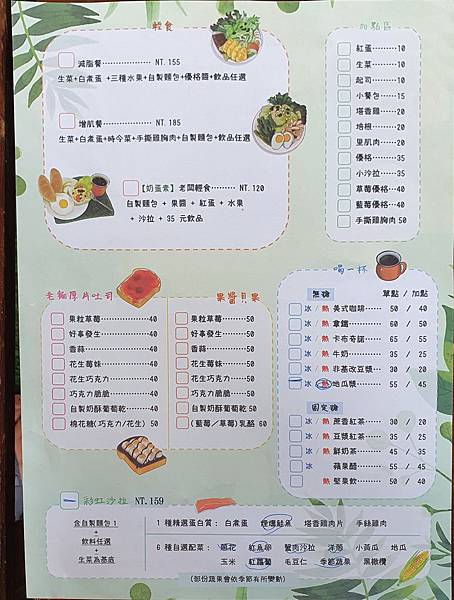 輕食
減脂餐 NT.155
生菜+白煮蛋+三種水果+自製麵包+優格醬+飲品任選
增肌餐 NT.185
生菜+白煮蛋+時令菜+手撕雞胸肉+自製麵包+飲品任選
【奶蛋素】老闆輕食 NT.120
自製麵包 + 果醬 + 紅蛋 + 水果
+ 沙拉 + 35 元飲品
加點區
紅蛋 10
生菜 10
起司 10
小餐包 15
塔香雞 20
培根 20
里肌肉 20
優格 35
小沙拉 35
草莓優格 40
藍莓優格 40
手撕雞胸肉 50
老麵厚片吐司
果粒草莓 40
好事發生 40
香蒜 40
花生莓妹 40
花生巧克力 40
巧克力脆脆 40
自製奶酥葡萄乾 40
棉花糖(巧克力/花生) 50
果醬貝果
果粒草莓 50
好事發生 50
香蒜 50
花生莓妹 50
花生巧克力 50
巧克力脆脆 50
自製奶酥葡萄乾 50
(藍莓/草莓)乳酪 60
喝一杯
無糖 單點 / 加點
冰 / 熱 美式咖啡 50 / 40
冰 / 熱 拿鐵 60 / 50
冰 / 熱 卡布奇諾 65 / 55
冰 / 熱 牛奶 35 / 25
冰 / 熱 非基改豆漿 30 / 20
冰 / 熱 地瓜漿 55 / 45
固定糖
冰 / 熱 蔗香紅茶 30 / 20
冰 / 熱 豆漿紅茶 35 / 25
冰 / 熱 鮮奶茶 45 / 35
冰 蘋果醋 55 / 45
熱 堅果飲 50 / 40
彩虹沙拉 NT.159
含自製麵包1
+
飲料任選
+
生菜為基底
1 種精選蛋白質: 白煮蛋 煙燻鮭魚 塔香雞肉片 手絲雞肉
6 種自選配菜: 甌花 紅魚卵 蟹肉沙拉 洋蔥 小黃瓜 地瓜
玉米 紅蘿蔔 毛豆仁 季節蔬果 黑橄欖
(部份蔬果會依季節有所變動)